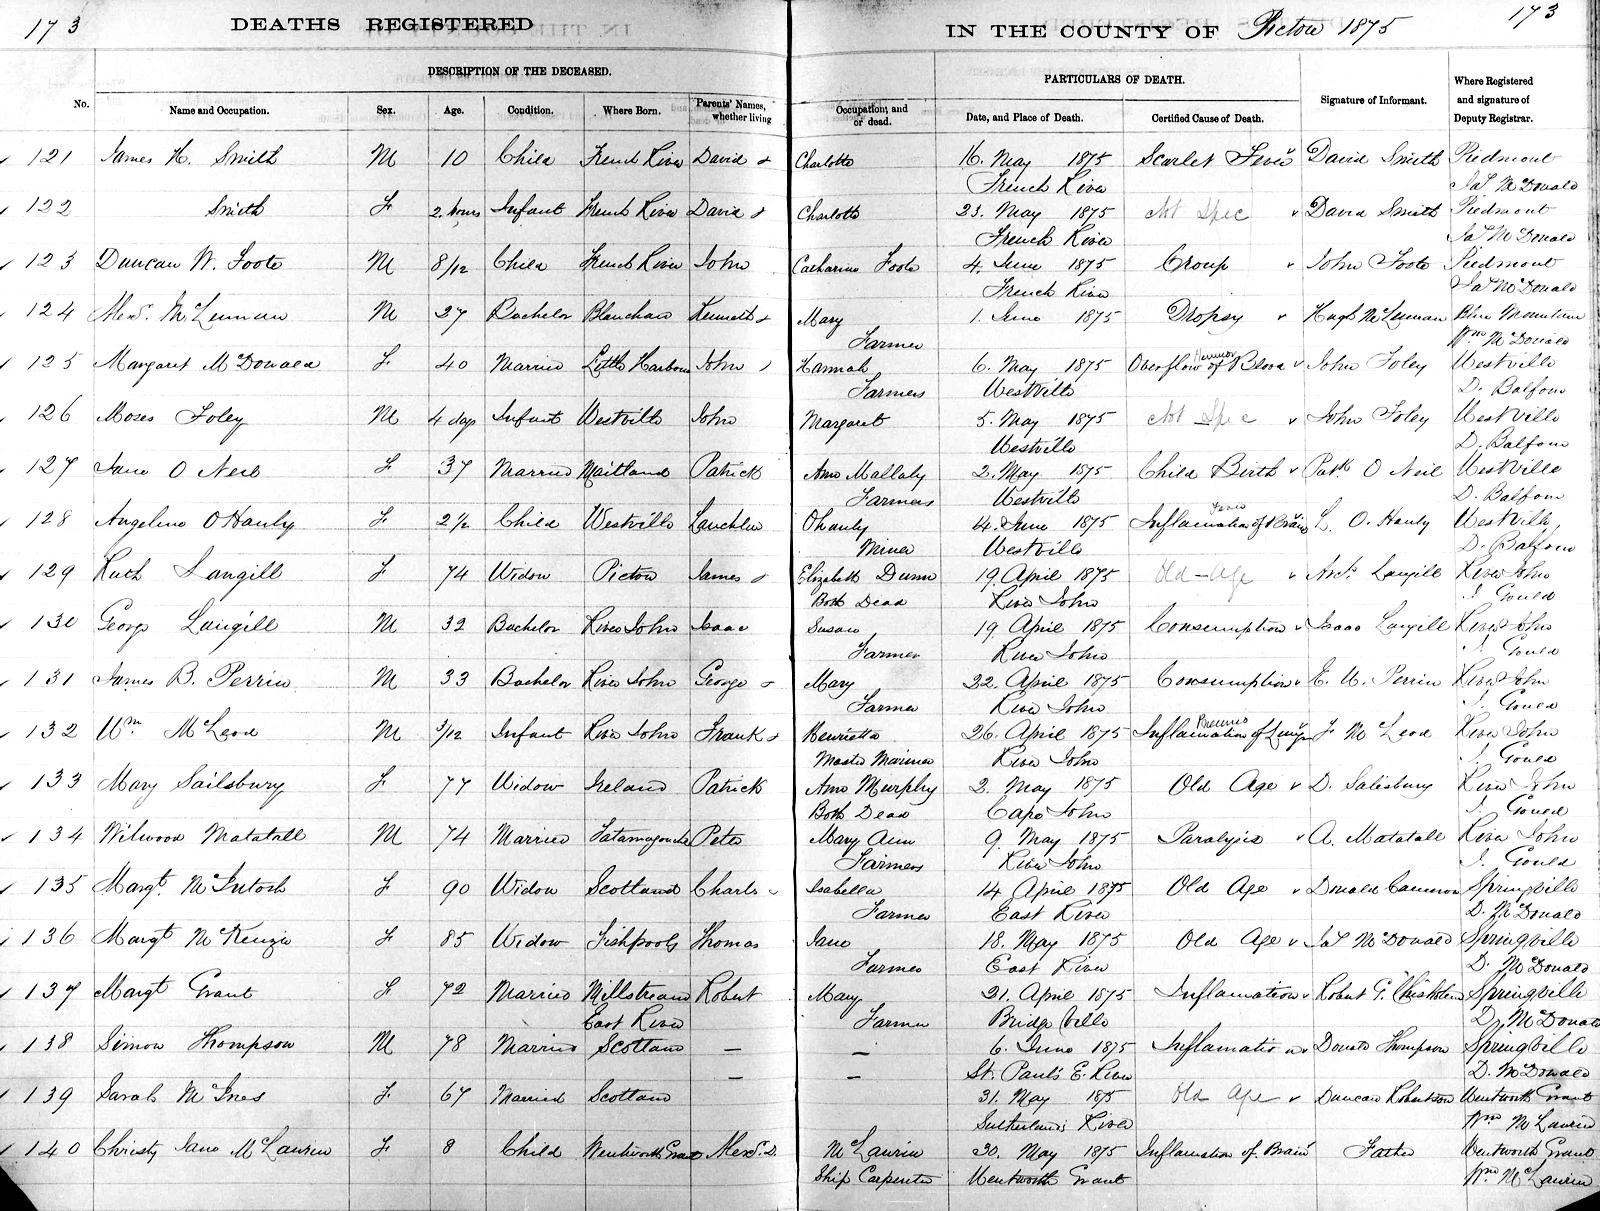 173 DEATHS REGISTERED IN THE COUNTY OF Pictou 1875 173
DESCRIPTION OF THE DECEASED. PARTICULARS OF DEATH.
No. Name and Occupation. Sex. Age. Condition. Where Born. Parents' Names, whether living Occupation, and or dead. Date, and Place of Death. Certified Cause of Death. Signature of Informant. Where Registered and signature of Deputy Registrar.
121 James H. Smith M 10 Child French River David & Charlotte 16. May 1875 Scarlet Fever David Smith Piedmont
French River Jas McDonald
122 Smith F 2 hours Infant French River David & Charlotte 23. May 1875 Not Spec David Smith Piedmont
French River Jas McDonald
123 Duncan W. Foote M 8/12 Child French River John Catharine Foote 4. June 1875 Croup John Foote Piedmont
French River Jas McDonald
124 Alexr. McLennan M 27 Bachelor Blanchard Kenneth & Mary 1. June 1875 Dropsy Hugh McLennan Blue Mountain
Farmer Wm McDonald
125 Margaret McDonald F 40 Married Little Harbour John Hannah 6. May 1875 Overflow of Blood John Foley Westville
Farmers Westville D. Balfour
126 Moses Foley M 4 days Infant Westville John Margaret 5. May 1875 Not Spec John Foley Westville
Westville D. Balfour
127 Jane O Neil F 37 Married Maitland Patrick Ann Mallaly 2. May 1875 Child Birth Patk O Neil Westville
Farmers Westville D. Balfour
128 Angelina O Hanly F 2½ Child Westville Lauchlin Ohanly 14. June 1875 Inflamation of Brain L. O. Hanly Westville
Fever
Miner Westville D. Balfour
129 Ruth Langill F 74 Widow Pictou James & Elizabeth Dunn 19. April 1875 Old-Age Archd Langill River John
Both Dead River John J. Gould
130 George Langill M 32 Bachelor River John Isaac Susan 19 April 1875 Consumption Isaac Langill River John
Farmer River John J. Gould
131 James B. Perrin M 33 Bachelor River John George & Mary 22. April 1875 Consumption E. W. Perrin River John
Farmer River John J. Gould
132 Wm McLeod M 3/12 Infant River John Frank & Henrietta 26. April 1875 Inflamation of Lungs F McLeod River John
Pneumo
Master Mariner River John J. Gould
133 Mary Sailsbury F 77 Widow Ireland Patrick Ann Murphy 2. May 1875 Old Age D. Salesbury River John
Both Dead Cape John J. Gould
134 Wilwood Matatall M 74 Married Tatamagouche Peter Mary Ann 9. May 1875 Paralysis A. Matatall River John
Farmers River John J. Gould
135 Margt. McIntosh F 90 Widow Scotland Charls Isabella 14 April 1875 Old Age Donald Cameron Springville
Farmer East River D. McDonald
136 Margt McKenzie F 85 Widow Fishpools Thomas Jane 18. May 1875 Old Age Jas McDonald Springville
Farmer East River D. McDonald
137 Margt Grant F 72 Married Millstream Robert Mary 21. April 1875 Inflamation Robert G. Chisholm Springville
East River Farmer Bridge Ville D. McDonald
138 Simon Thompson M 78 Married Scotland — — 6. June 1875 Inflamation Donald Thompson Springville
— — St. Paul's E. River D. McDonald
139 Sarah McInes F 67 Married Scotland 31. May 1875 Old Age Duncan Robertson Wentworth Grant
Sutherlands River Wm McLaurin
140 Christy Jane McLaurin F 8 Child Wentworth Grant Alexr. D. McLaurin 30. May 1875 Inflamation of Brain Father Wentworth Grant
Ship Carpenter Wentworth Grant Wm McLaurin